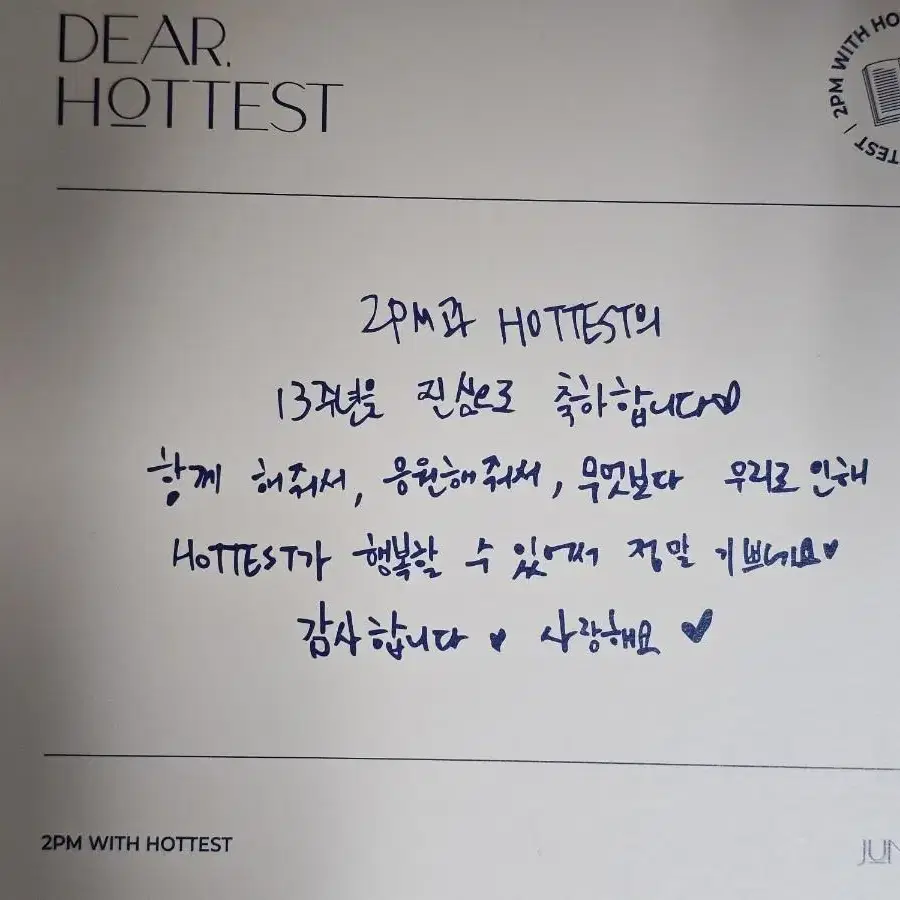 DEAR.
HOTTEST
2PM WITH HO
TEST |
2PM과 HOTTEST의
13주년을 진심으로 축하합니다♡
함께 해줘서, 응원해줘서, 무엇보다 우리로 인해
HOTTEST가 행복할 수 있어서 정말 기쁘네요♥
감사합니다 ♥ 사랑해요 ♥
2PM WITH HOTTEST
JUN